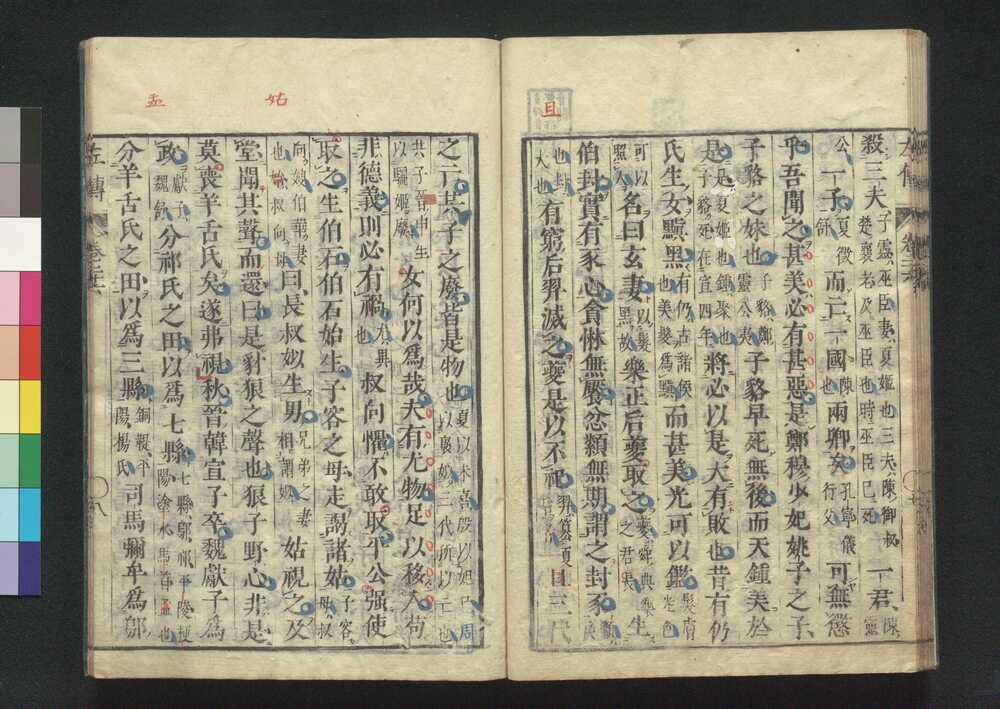 且
殺三夫子靈巫臣妻夏姬也三夫陳御叔楚襄老及巫臣也時巫臣已死一君陳靈
公一子夏徵舒而亡一國陳也兩卿矣孔寧儀行父可無懲
乎吾聞之甚美必有甚惡是鄭穆少妃姚子之子
子貉之妹也子貉鄭靈公夷也子貉早死無後而天鍾美於
是是夏姬也鍾聚也子貉死在宣四年將必以是大有敗也昔有仍
氏生女黰黑有仍古諸侯也美髮爲黰而甚美光可以鑑髮膚光色
可以照人名曰玄妻以髮黑故樂正后夔取之夔舜典樂之君長生
伯封實有豕心貪惏無饜忿纇無期謂之封豕纇戾
也封大也有窮后羿滅之夔是以不祀羿篡夏且三代
姑
盂
之亡共子之廢皆是物也夏以末喜殷以妲己周以褒姒三代所以亡也
共子晉申生以驪姬廢女何以爲哉夫有尤物足以移人苟
非德義則必有禍尤異也叔向懼不敢取平公强使
取之生伯石伯石始生子容之母走謁諸姑子容母叔
向嫂伯華妻也姑叔向母曰長叔姒生男兄弟之妻相謂姒姑視之及
堂聞其聲而還曰是豺狼之聲也狼子野心非是
莫喪羊舌氏矣遂弗視秋晉韓宣子卒魏獻子爲
政獻子魏舒分祁氏之田以爲七縣七縣鄔祁平陵梗陽塗水馬首盂也
分羊舌氏之田以爲三縣銅鞮平陽楊氏司馬彌牟爲鄔
左傳
八